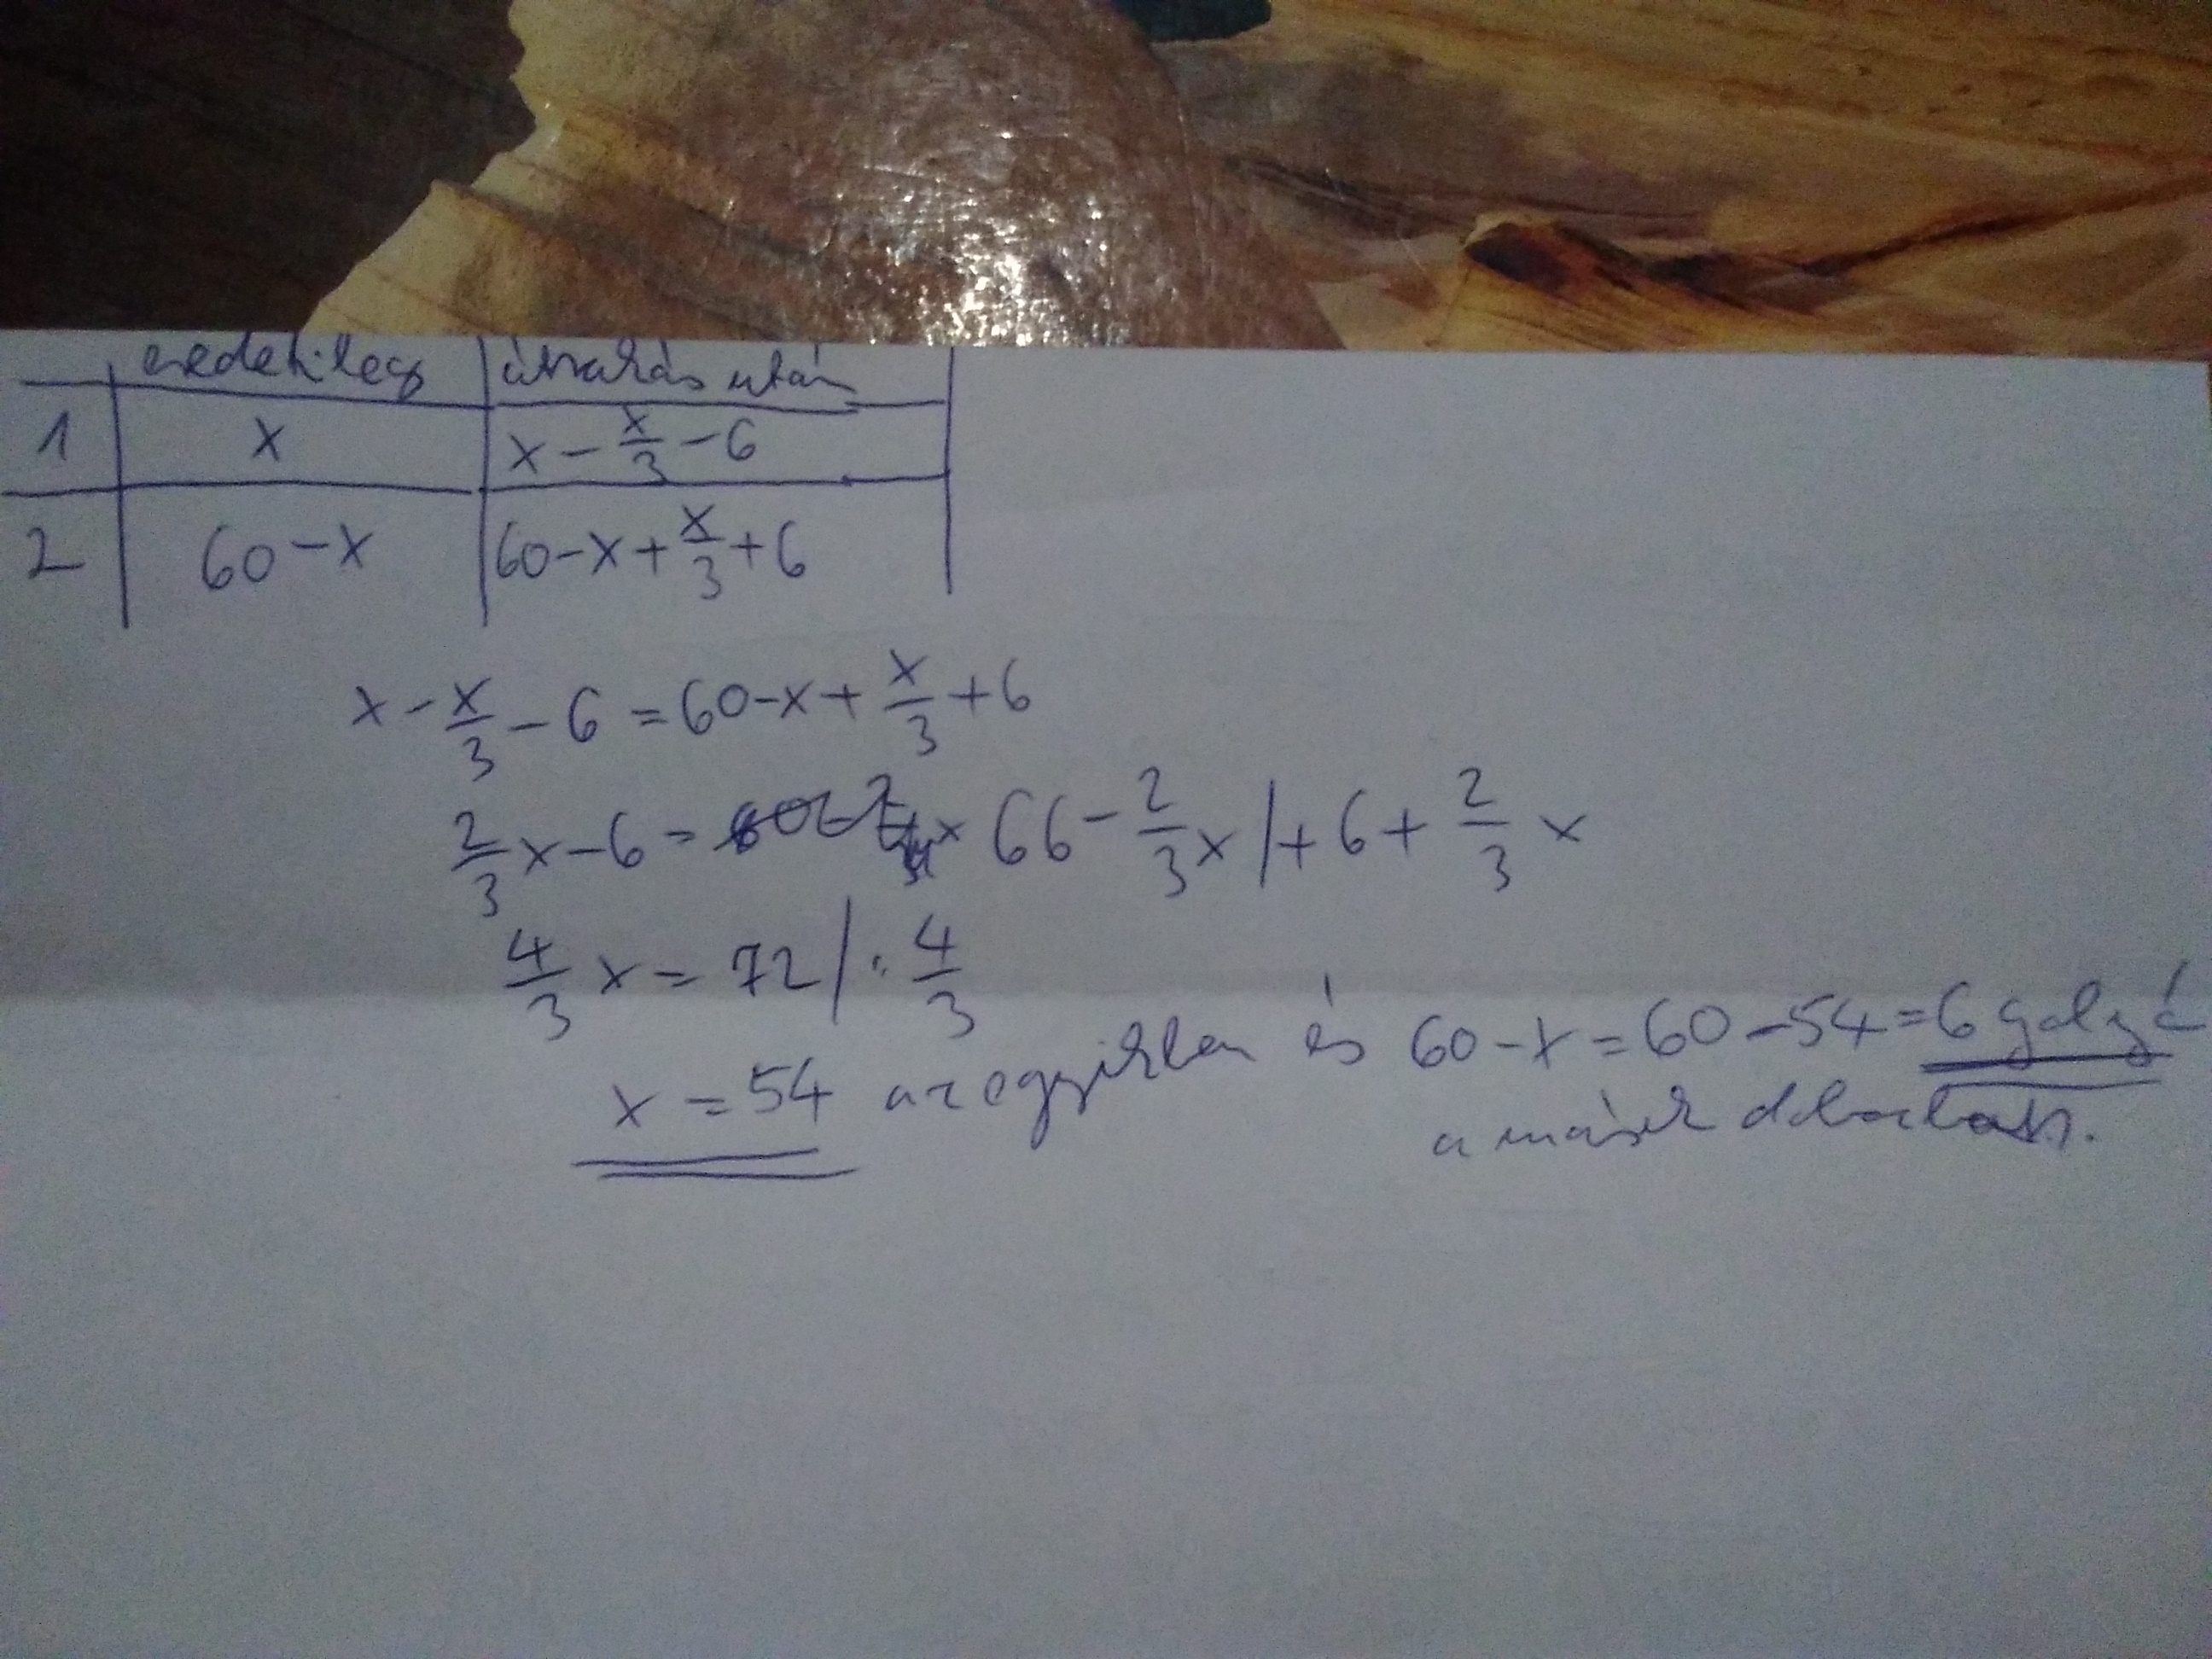 eredetileg átrakás után
1 x x - x/3 - 6
2 60 - x 60 - x + x/3 + 6
x - x/3 - 6 = 60 - x + x/3 + 6
2/3 x - 6 = 66 - 2/3 x / + 6 + 2/3 x
4/3 x = 72 / : 4/3
x = 54 az egyikben és 60 - x = 60 - 54 = 6 golyó
a másik dobozban.